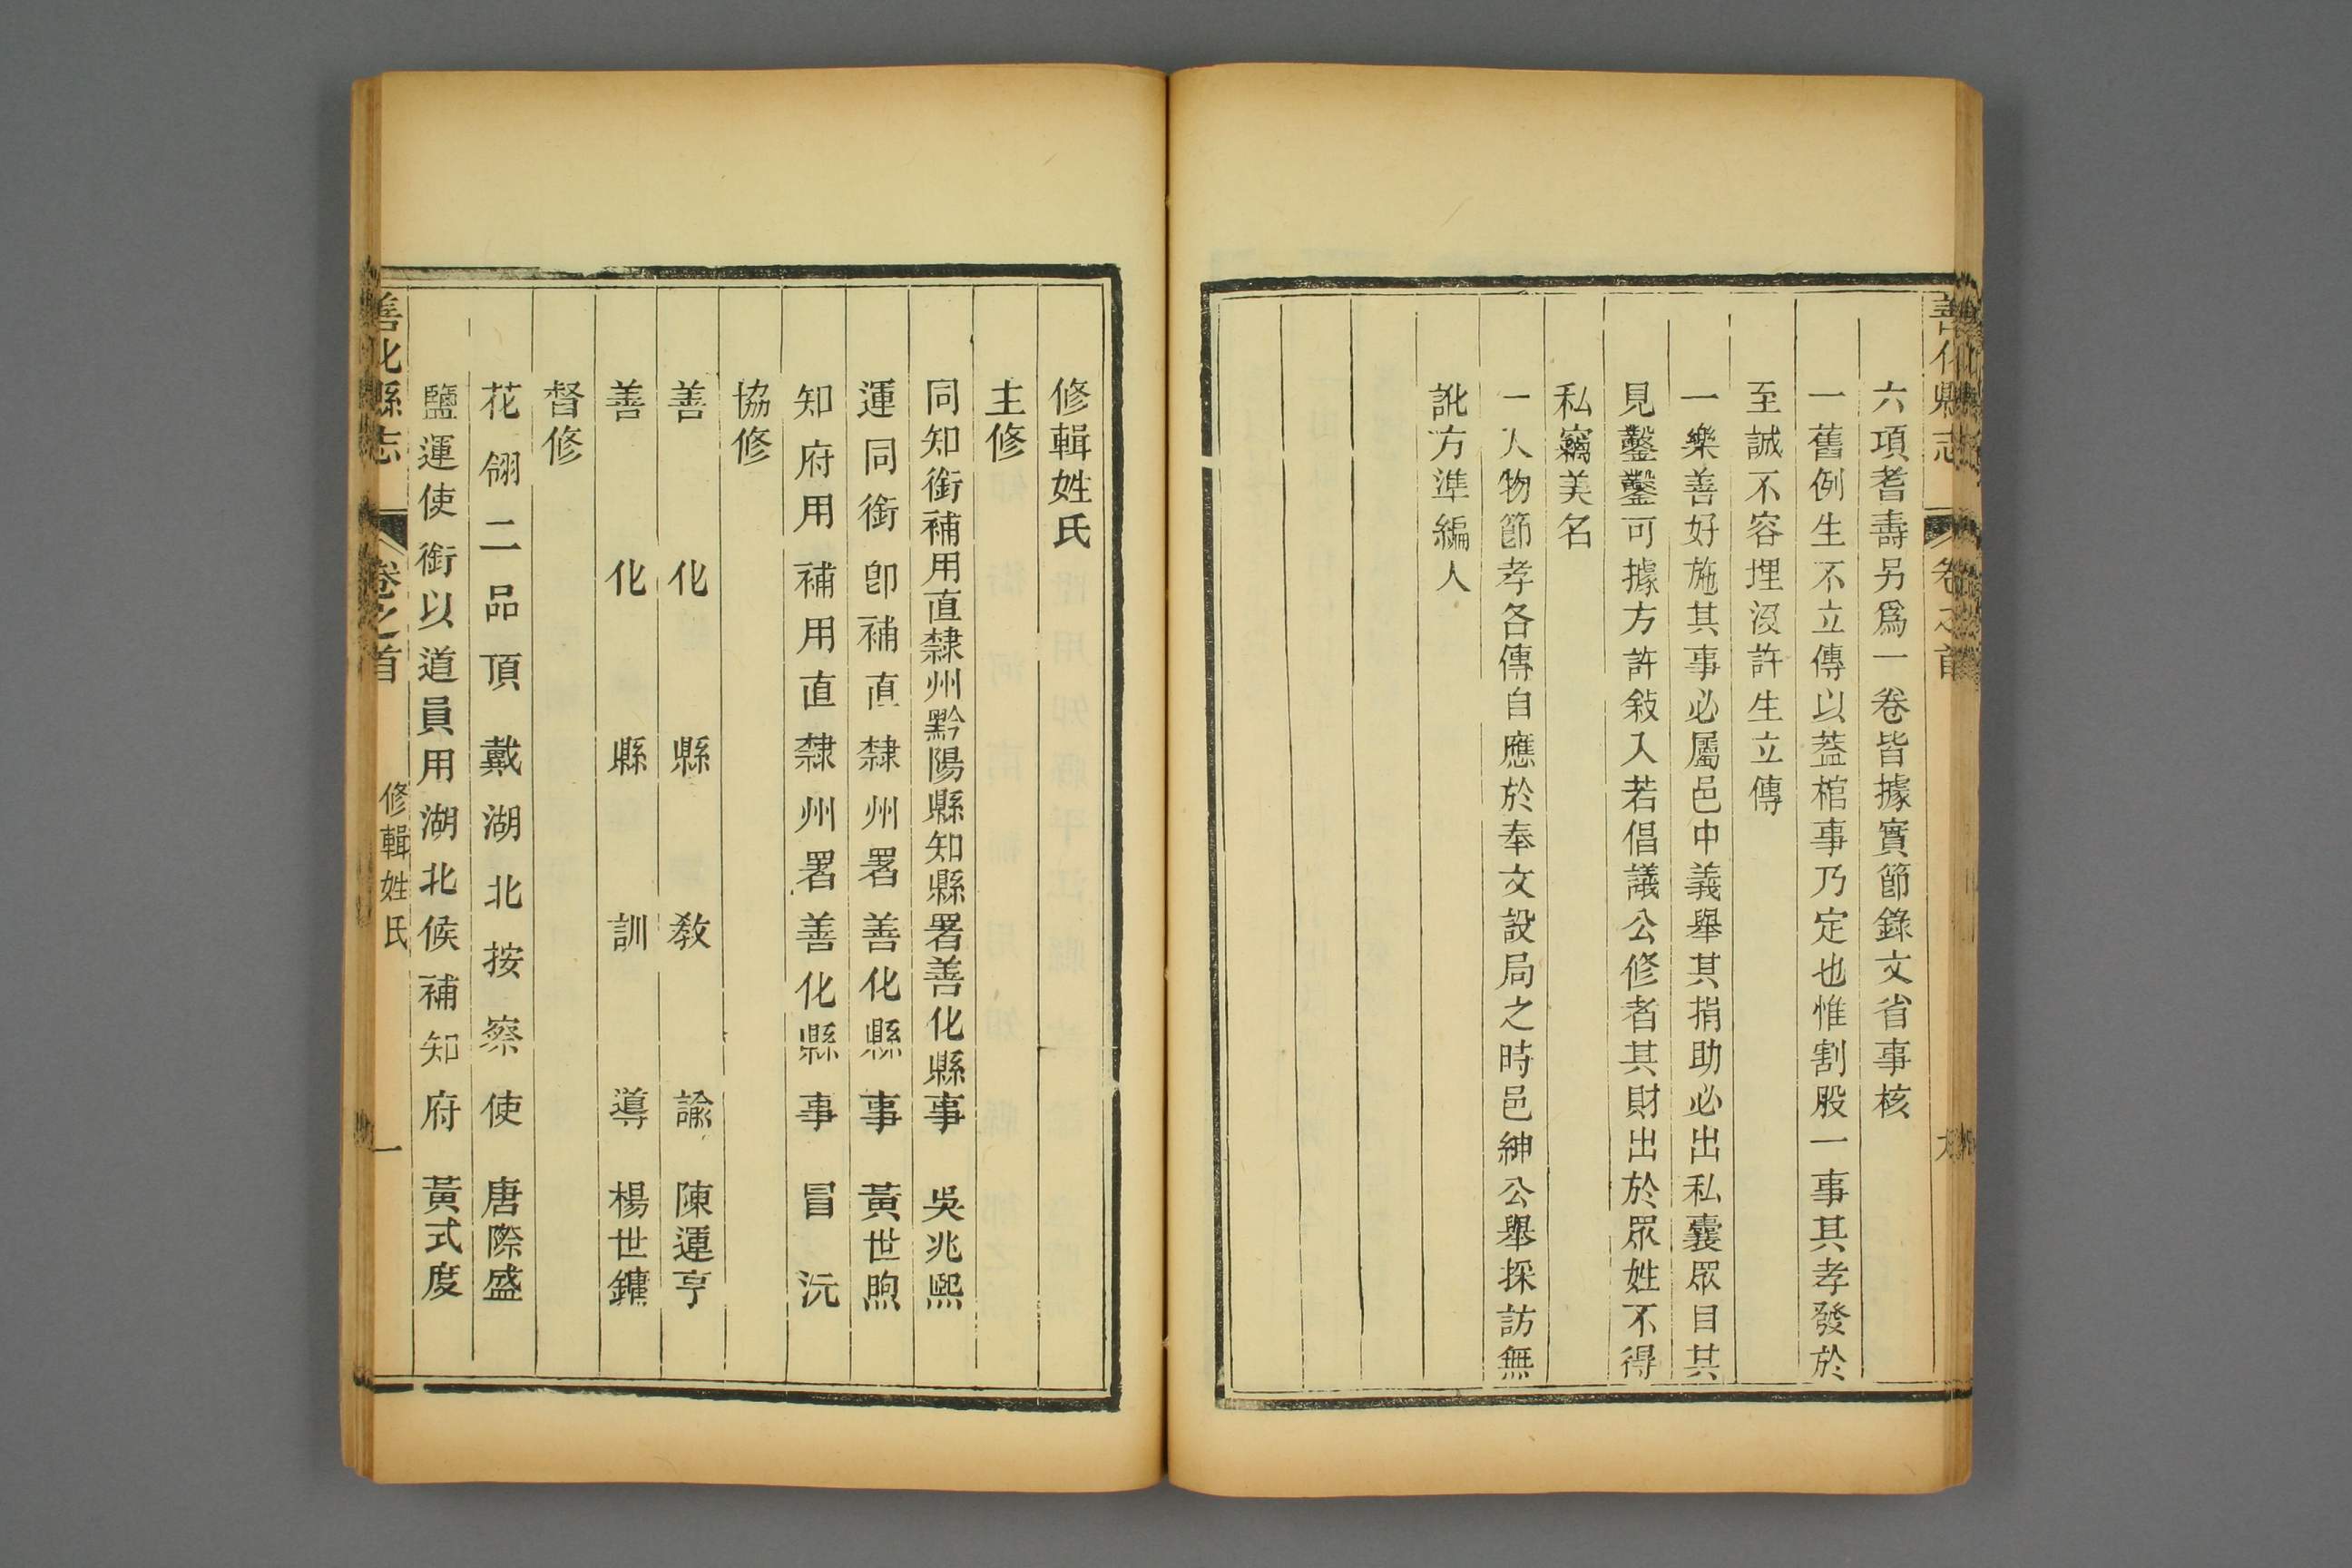 善化縣志 卷之首
六項耆壽另爲一卷皆據實節錄文省事核
一舊例生不立傳以蓋棺事乃定也惟割股一事其孝發於
至誠不容埋沒許生立傳
一樂善好施其事必屬邑中義舉其捐助必出私囊眾目共
見鑿鑿可據方許敍入若倡議公修者其財出於眾姓不得
私竊美名
一人物節孝各傳自應於奉文設局之時邑紳公舉採訪無
訛方準編入
修輯姓氏
主修
同知銜補用直隸州黔陽縣知縣署善化縣事 吳兆熙
運同銜卽補直隸州署善化縣事 黃世煦
知府用補用直隸州署善化縣事 冒沅
協修
善化縣教諭 陳運亨
善化縣訓導 楊世鏞
督修
花翎二品頂戴湖北按察使 唐際盛
鹽運使銜以道員用湖北候補知府 黃式度
善化縣志 卷之首 修輯姓氏 一